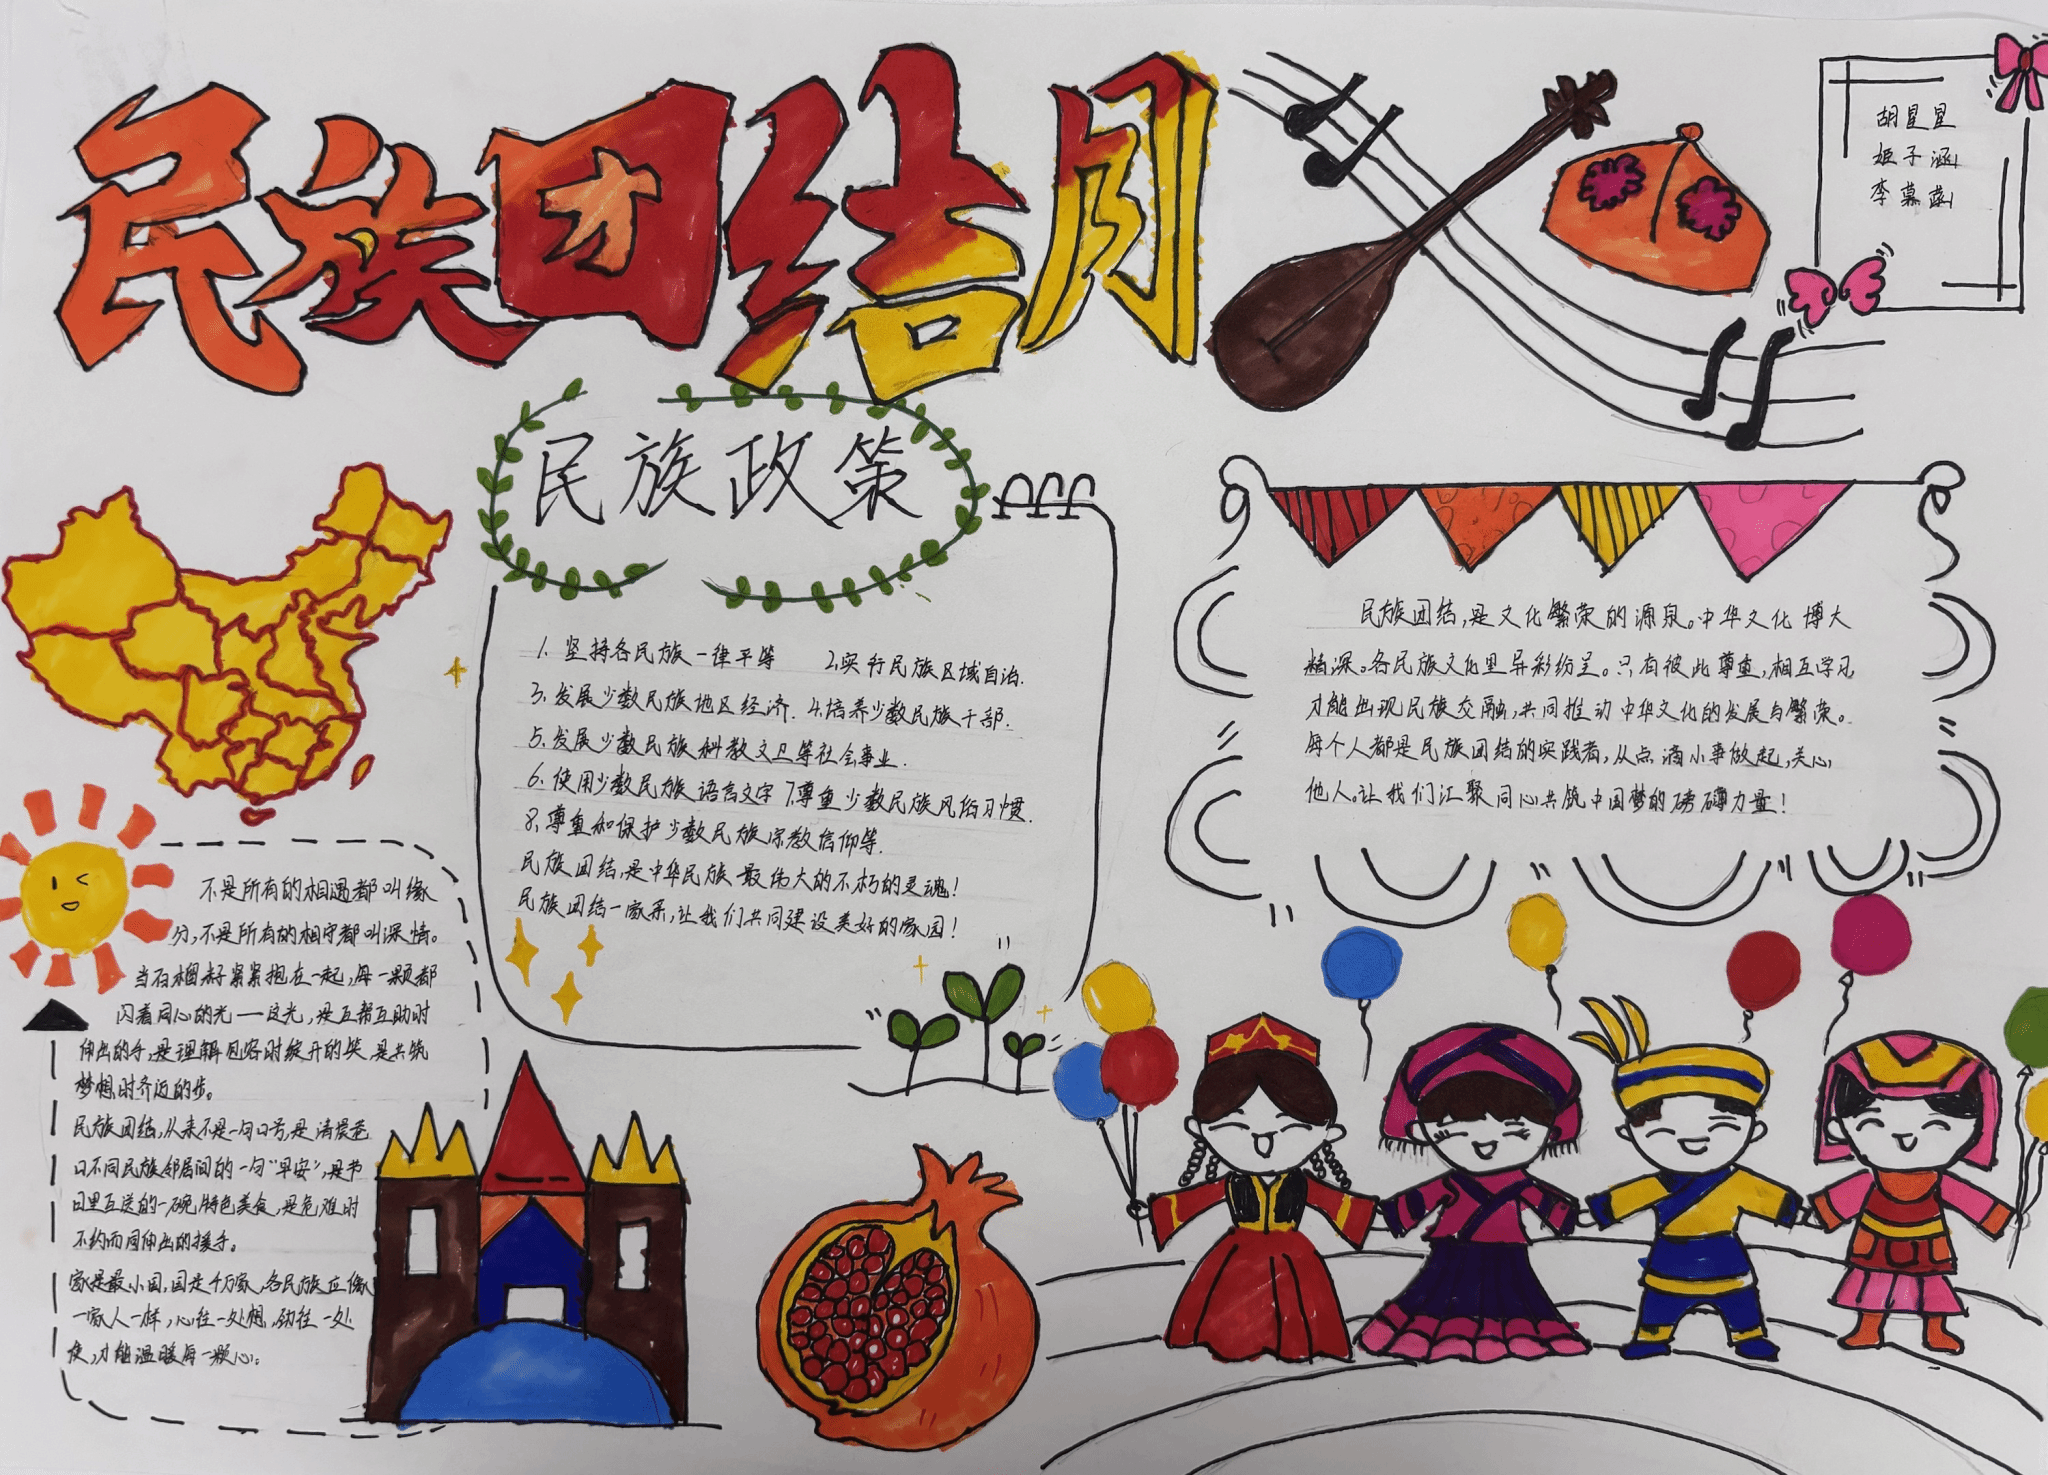 民族团结月
胡星星
姬子涵
李慕蕊
民族政策
1. 坚持各民族一律平等 2.实行民族区域自治.
3. 发展少数民族地区经济. 4.培养少数民族干部.
5. 发展少数民族科教文卫等社会事业.
6. 使用少数民族语言文字 7.尊重少数民族风俗习惯.
8. 尊重和保护少数民族宗教信仰等.
民族团结,是中华民族最伟大的不朽的灵魂!
民族团结一家亲,让我们共同建设美好的家园!
民族团结,是文化繁荣的源泉。中华文化博大
精深。各民族文化里异彩纷呈。只有彼此尊重,相互学习
才能出现民族交融,共同推动中华文化的发展与繁荣。
每个人都是民族团结的实践者,从点滴小事做起,关心
他人。让我们汇聚同心共筑中国梦的磅礴力量!
不是所有的相遇都叫缘
分,不是所有的相守都叫深情。
当石榴籽紧紧抱在一起,每一颗都
闪着同心的光——这光,是互帮互助时
伸出的手,是理解包容时绽开的笑,是共筑
梦想时齐迈的步。
民族团结,从来不是一句口号,是清晨巷
口不同民族邻居间的一句“早安”,是节
日里互送的一碗特色美食,是危难时
不约而同伸出的援手。
家是最小国,国是千万家,各民族应像
一家人一样,心往一处想,劲往一处
使,才能温暖每一颗心。